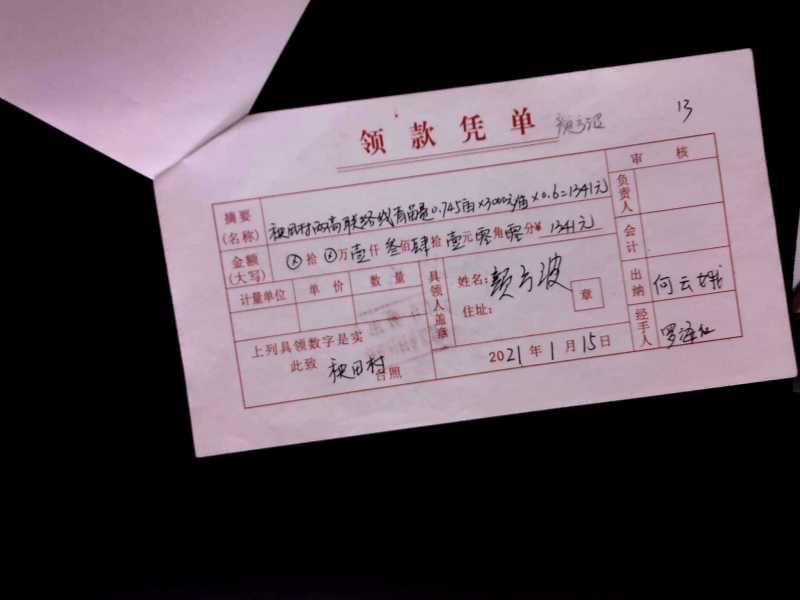 领款凭单
13
审核
摘要(名称) 秧田村两高联络线青苗是0.745亩×3000元/亩×0.6=1341元
负责人
金额(大写) ⊗拾⊗万壹仟叁佰肆拾壹元零角零分¥1341元
会计
计量单位 单价 数量
具领人盖章
姓名:颜
住址:
章
出纳 何云娥
上列具领数字是实
此致 秧田村 台照
2021年1月15日
经手人 罗